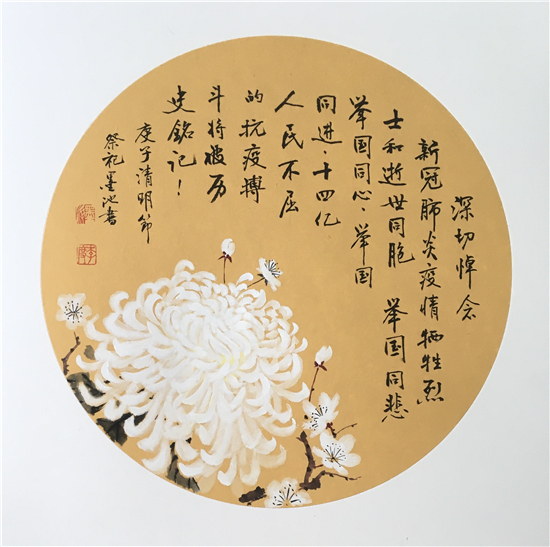 深切悼念
新冠肺炎疫情牺牲烈
士和逝世同胞 举国同悲
举国同心、举国
同进、十四亿
人民不屈
的抗疫搏
斗将被历
史铭记！
庚子清明节
祭礼墨池书